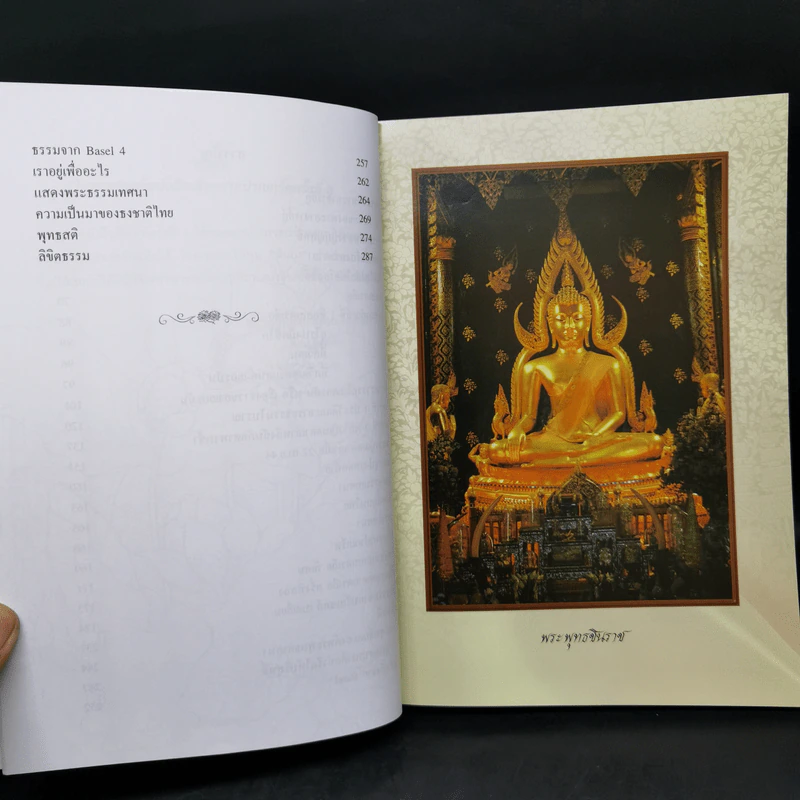 ธรรมจาก Basel 4 257
เราอยู่เพื่ออะไร 262
แสดงพระธรรมเทศนา 264
ความเป็นมาของธงชาติไทย 269
พุทธสติ 274
ลิขิตธรรม 287
พระพุทธชินราช